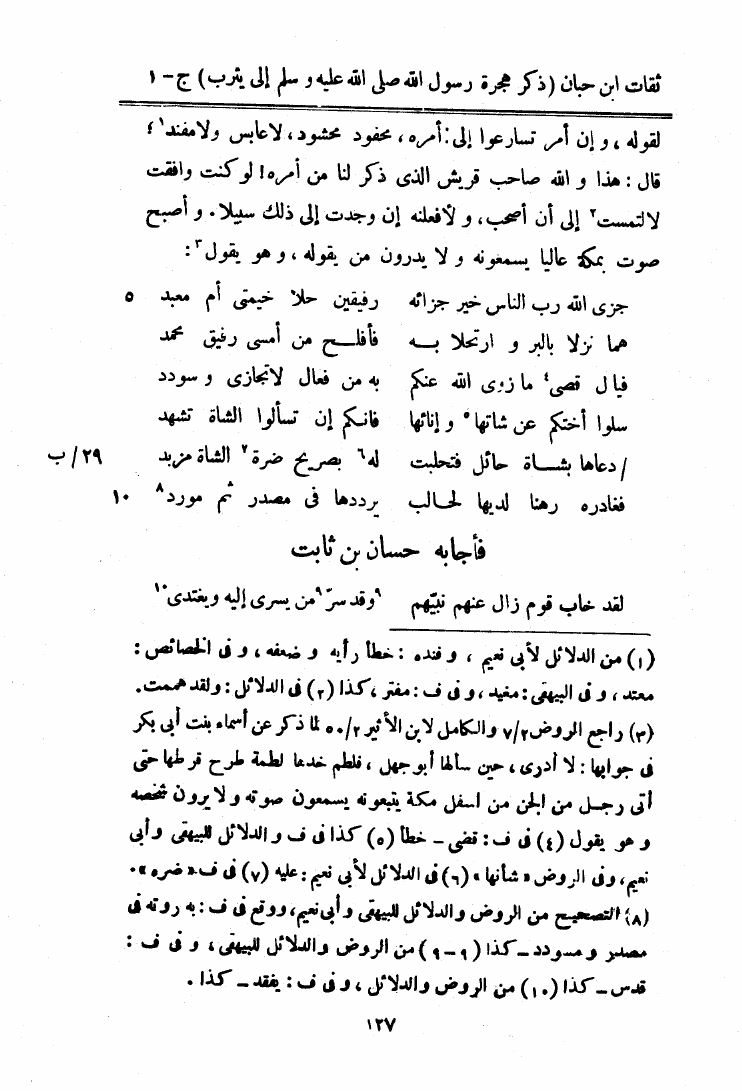 ثقات ابن حبان (ذكر هجرة رسول الله صلى الله عليه و سلم إلى يثرب) ج - ١
لقوله ، و إن أمر تسارعوا إلى : أمره ، محفود محشود ، لا عابس ولا مفند ١ ؛
قال : هذا و الله صاحب قريش الذى ذكر لنا من أمره ! لو كنت وافقت
لالتمست ٢ إلى أن أصحب ، و لأفعلنه إن وجدت إلى ذلك سبيلا . و أصبح
صوت بمكة عاليا يسمعونه و لا يدرون من يقوله ، و هو يقول ٣ :
جزى الله رب الناس خير جزائه رفيقين حلا خيمتى أم معبد ٥
هما نزلا بالبر و ارتحلا به فأفلح من أمسى رفيق محمد
فيال قصى ٤ ما زوى الله عنكم به من فعال لا تجازى و سودد
سلوا أختكم عن شاتها ٥ و إنائها فانكم إن تسألوا الشاة تشهد
/ دعاها بشاة حائل فتحلبت له ٦ بصريح ضرة ٧ الشاة مزبد ٢٩/ ب
فغادره رهنا لديها لحالب يرددها فى مصدر ثم مورد ٨ ١٠
فأجابه حسان بن ثابت
لقد خاب قوم زال عنهم نبيّهم ٩ وقد سرّ ٩ من يسرى إليه ويغتدى ١٠
(١) من الدلائل لأبى نعيم ، و فنده : خطأ رأيه و ضعفه ، و فى الخصائص :
معتد ، و فى البيهقى : مفيد ، و فى ف : مفتر ، كذا (٢) فى الدلائل : ولقد هممت .
(٣) راجع الروض ٧/٢ والكامل لابن الأثير ٥٠/٢ لما ذكر عن أسماء بنت أبى بكر
فى جوابها : لا أدرى ، حين سألها أبو جهل ، فلطم خدها لطمة طرح قرطها حتى
أتى رجل من الجن من اسفل مكة يتبعونه يسمعون صوته و لا يرون شخصه
و هو يقول (٤) فى ف : قضى - خطأ (٥) كذا فى ف و الدلائل للبيهقى وأبى
نعيم ، وفى الروض « شأنها » (٦) فى الدلائل لأبى نعيم : عليه (٧) فى ف « ضره » .
(٨) التصحيح من الروض والدلائل للبيهقى و أبى نعيم ، ووقع فى ف : به روته فى
مصدر و مسودد - كذا (٩ - ٩) من الروض والدلائل للبيهقى ، و فى ف :
قدس - كذا (١٠) من الروض والدلائل ، و فى ف : يفقد - كذا .
١٢٧